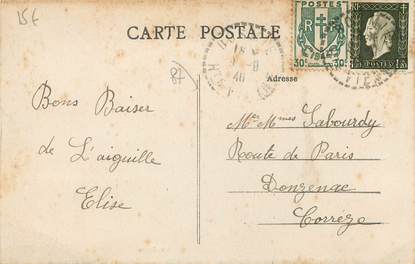 15€
CARTE POSTALE
POSTES
RF
30c 30c
POSTES
18
8
46
Adresse
Bons Baiser
de L'aiguille
Elise
Mr Mmes Sabourdy
Route de Paris
Donzenac
Corrèze